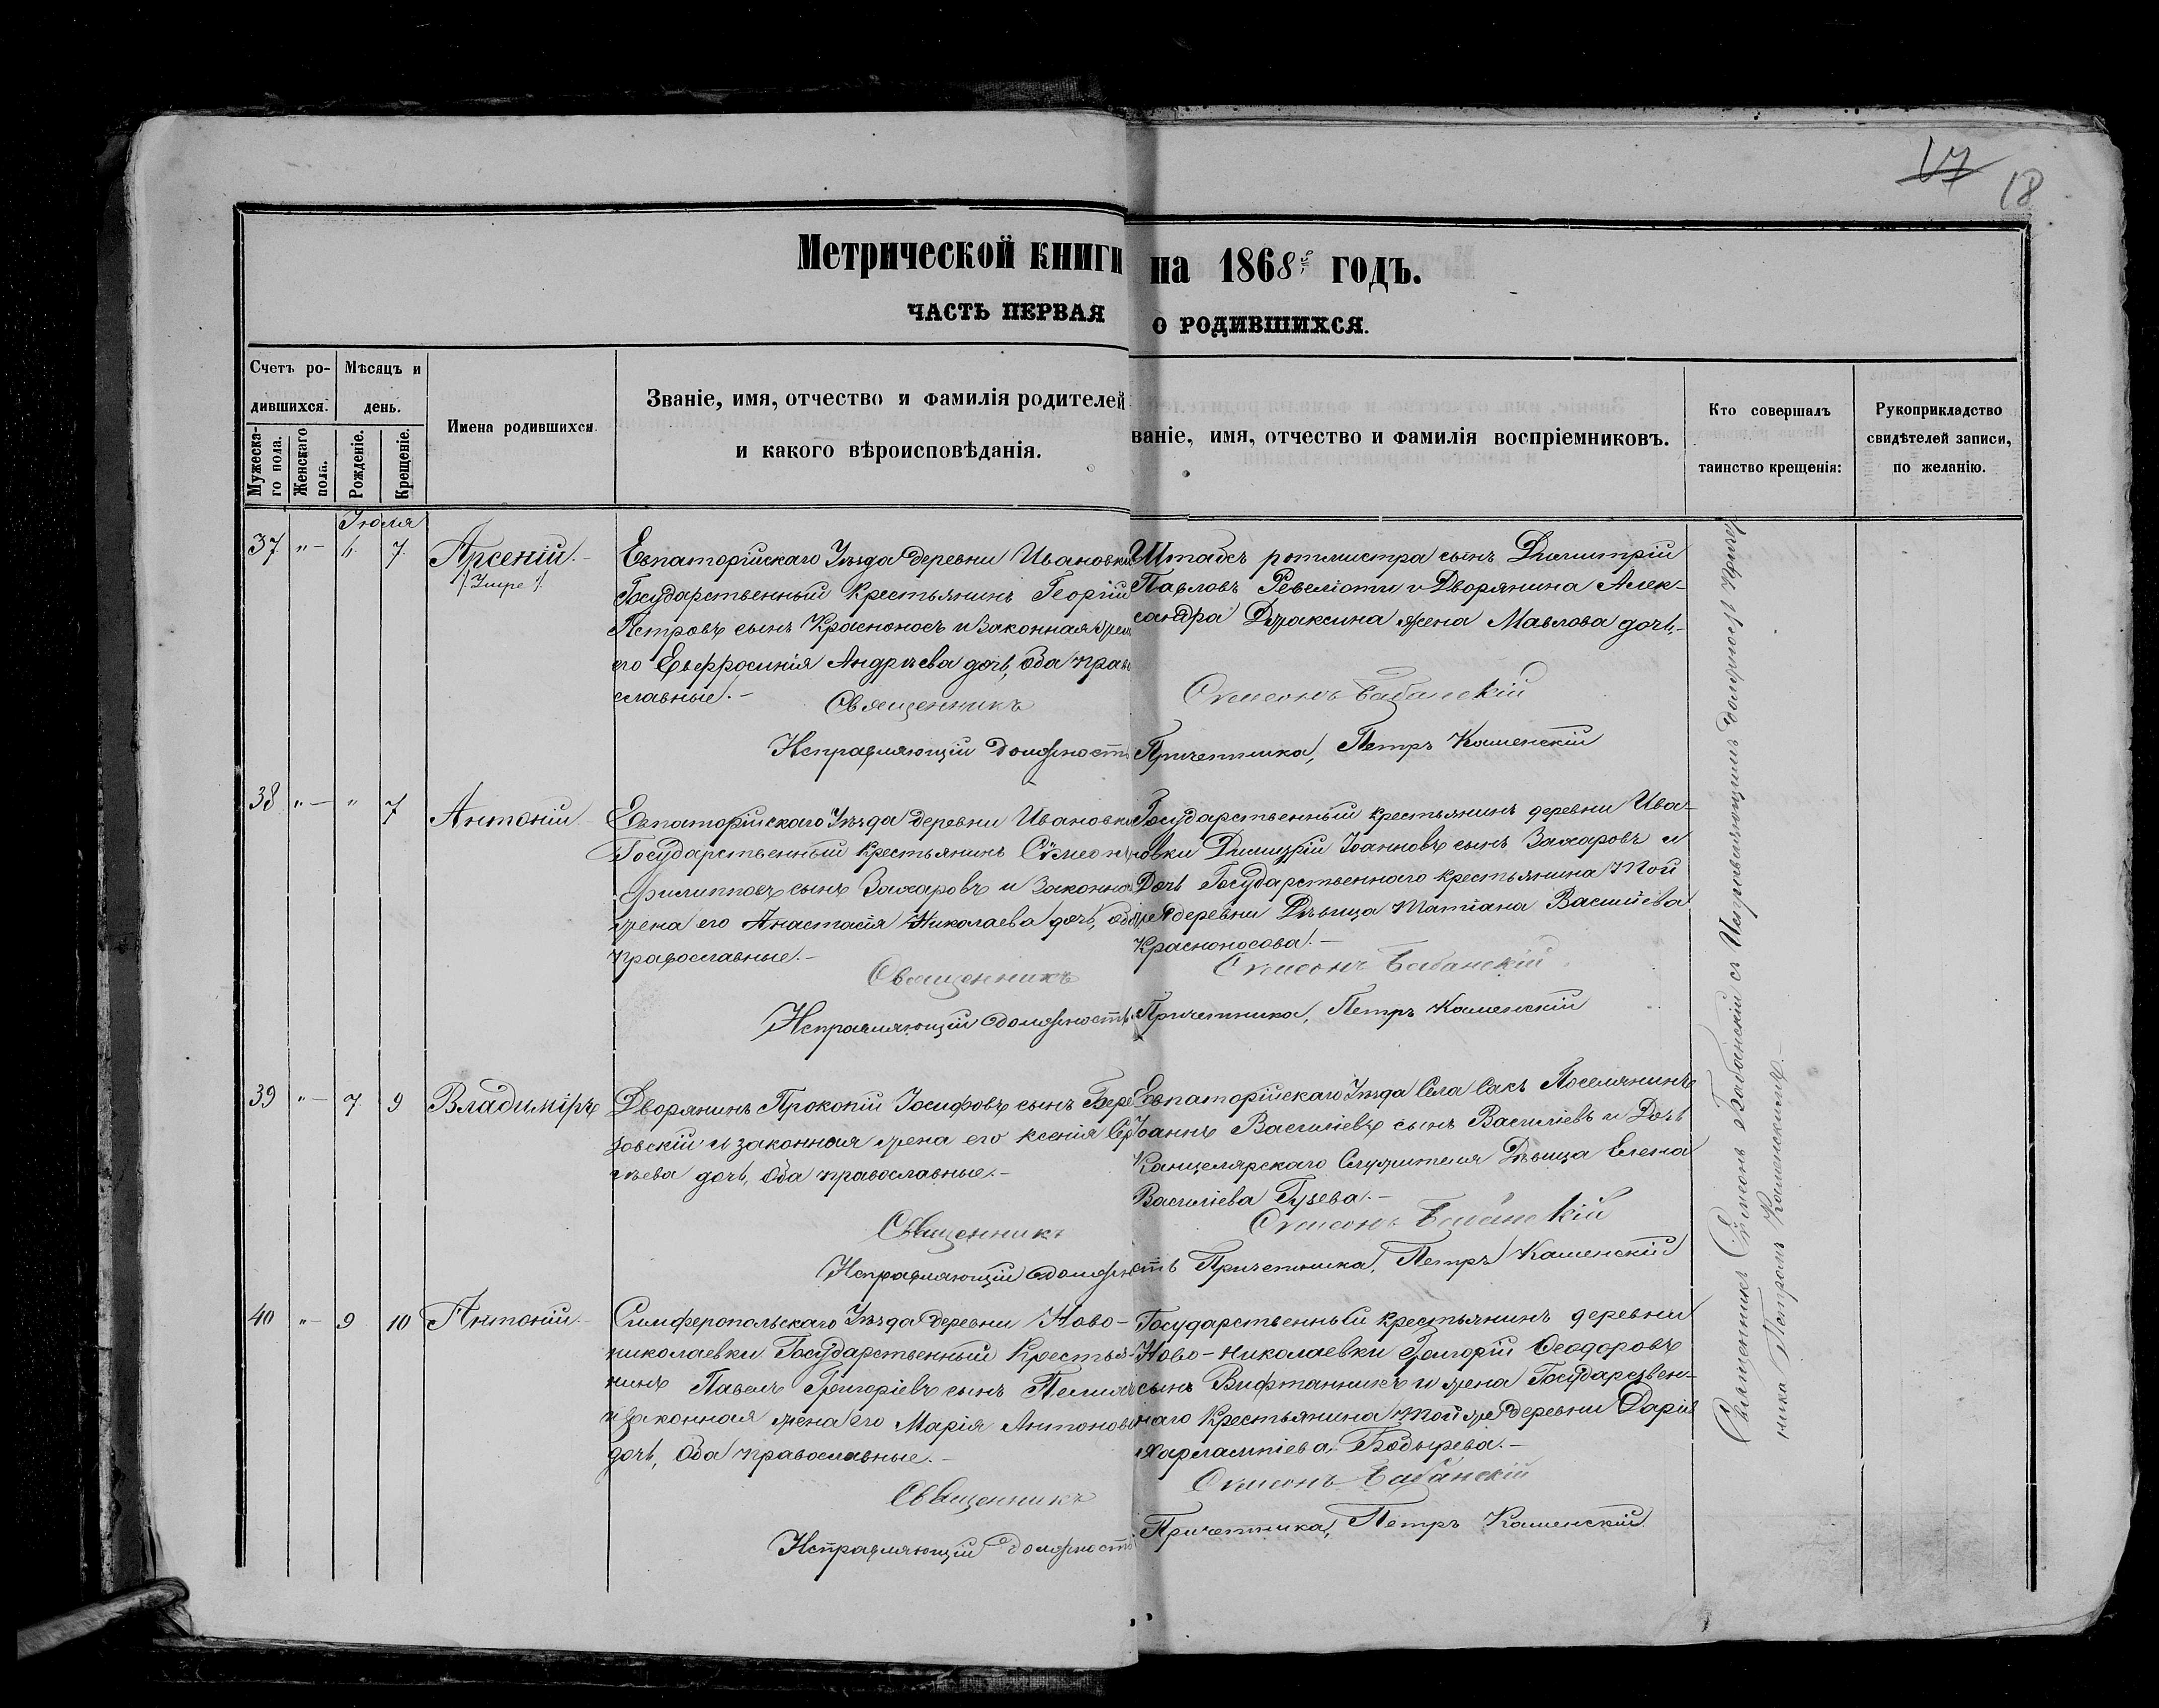 17
18
Метрической книги на 1868й годъ.
ЧАСТЬ ПЕРВАЯ О РОДИВШИХСЯ.
Счетъ ро-
дившихся.
Мужеска-
го пола.
Женскаго
пола.
Мѣсяцъ и
день.
Рожденіе.
Крещеніе.
Имена родившихся.
Званіе, имя, отчество и фамилія родителей
и какого вѣроисповѣданія.
ваніе, имя, отчество и фамилія воспріемниковъ.
Кто совершалъ
таинство крещенія:
Рукоприкладство
свидѣтелей записи,
по желанію.
Іюля
37 "– 6. 7. Арсеній.–
Евпаторійскаго Уѣзда деревни Ивановки
Государственный Крестьянинъ Георгій
Петровъ сынъ Красноносъ и Законная жен
его Евфросинія Андреева дочь, оба прав
славные.–
Штабсъ ротмистра сынъ Димитрій
Павловъ Ревеліоти и Дворянина Алек-
сандра Дураксина жена Павлова дочь.–
Священникъ Симеонъ Бабанскій
Исправляющій должность Причетника, Петръ Каменскій
38 "– " 7 Антоній
Евпаторійскаго Уѣзда деревни Ивановки
Государственный Крестьянинъ Сѵмеонъ
Филипповъ сынъ Захаровъ и Законна
жена его Анастасія Николаева дочь, оба
православные.–
Государственный крестьянинъ деревни Ива-
новки Димитрій Іоанновъ сынъ Захаровъ и
Дочь Государственнаго крестьянина той
же деревни Дѣвица Татіана Василіева
Красноносова.–
Священникъ Симеонъ Бабанскій
Исправляющій должность Причетника, Петръ Каменскій
39 "– 7. 9 Владиміръ
Дворянинъ Прокопій Іосифовъ сынъ Бере
зовскій и законная жена его Ксенія Сер
гѣева дочь, оба православные.–
Евпаторійскаго Уѣзда Села Сакъ Поселянинъ
Іоаннъ Василіевъ сынъ Василіевъ и Дочь
Канцелярскаго Служителя Дѣвица Елена
Василіева Гузева.–
Священникъ Симеонъ Бабанскій
Исправляющій должность Причетника, Петръ Каменскій
40 "– 9 10 Антоній.–
Симферопольскаго Уѣзда деревни Ново-
николаевки Государственный Крестья-
нинъ Павелъ Григоріевъ сынъ
и законная жена его Марія Антонова
дочь, Оба православные.–
Государственный крестьянинъ деревни
Ново-Николаевки Григорій Ѳеодоровъ
сынъ Вифтанникъ и жена Государствен-
наго Крестьянина той же деревни Дарія
Харлампіева Бодырева.–
Священникъ Симеонъ Бабанскій
Исправляющій должность Причетника, Петръ Каменскій.
Священникъ Сѵмеонъ Бабанскій съ Исправляющимъ должность Причет
ника Петромъ Каменскимъ.–